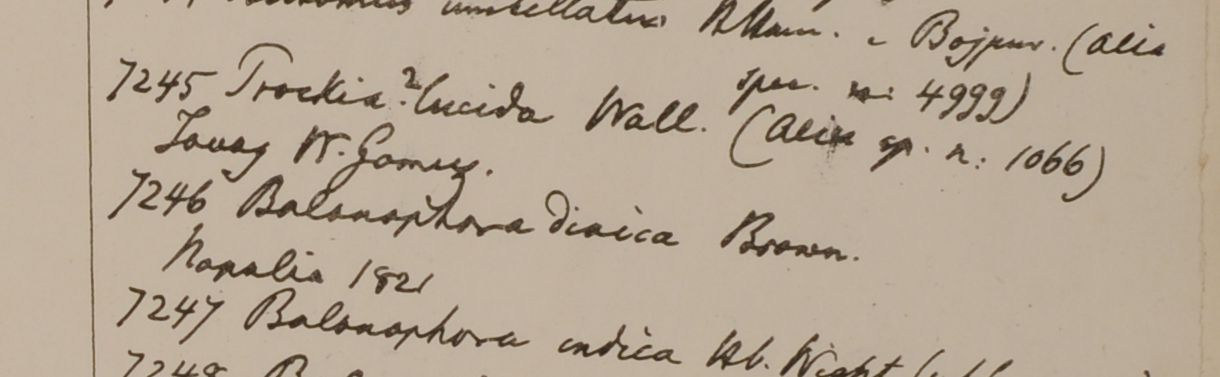 umbellatus Bojpur. (alia
spec. n: 4999)
7245 Trockia? lucida Wall. (alia sp. n: 1066)
Tavoy W. Gomez.
7246 Balanophora dioica Brown.
Napalia 1821
7247 Balanophora indica Hb. Wight
7248